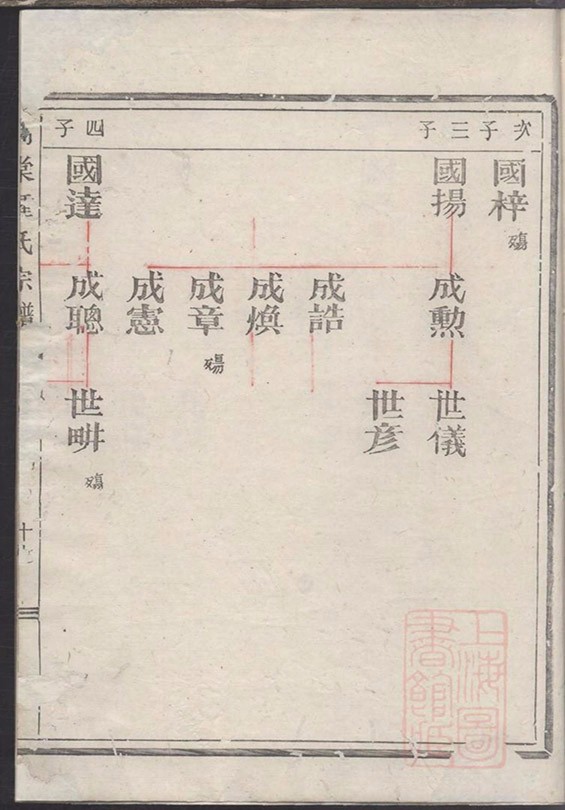 次子
三子
四子
國梓
殤
國揚
成勲
世儀
世彥
成誥
成煥
成章
殤
成憲
國達
成聰
世畊
殤
氏宗譜
十
上海圖
書館